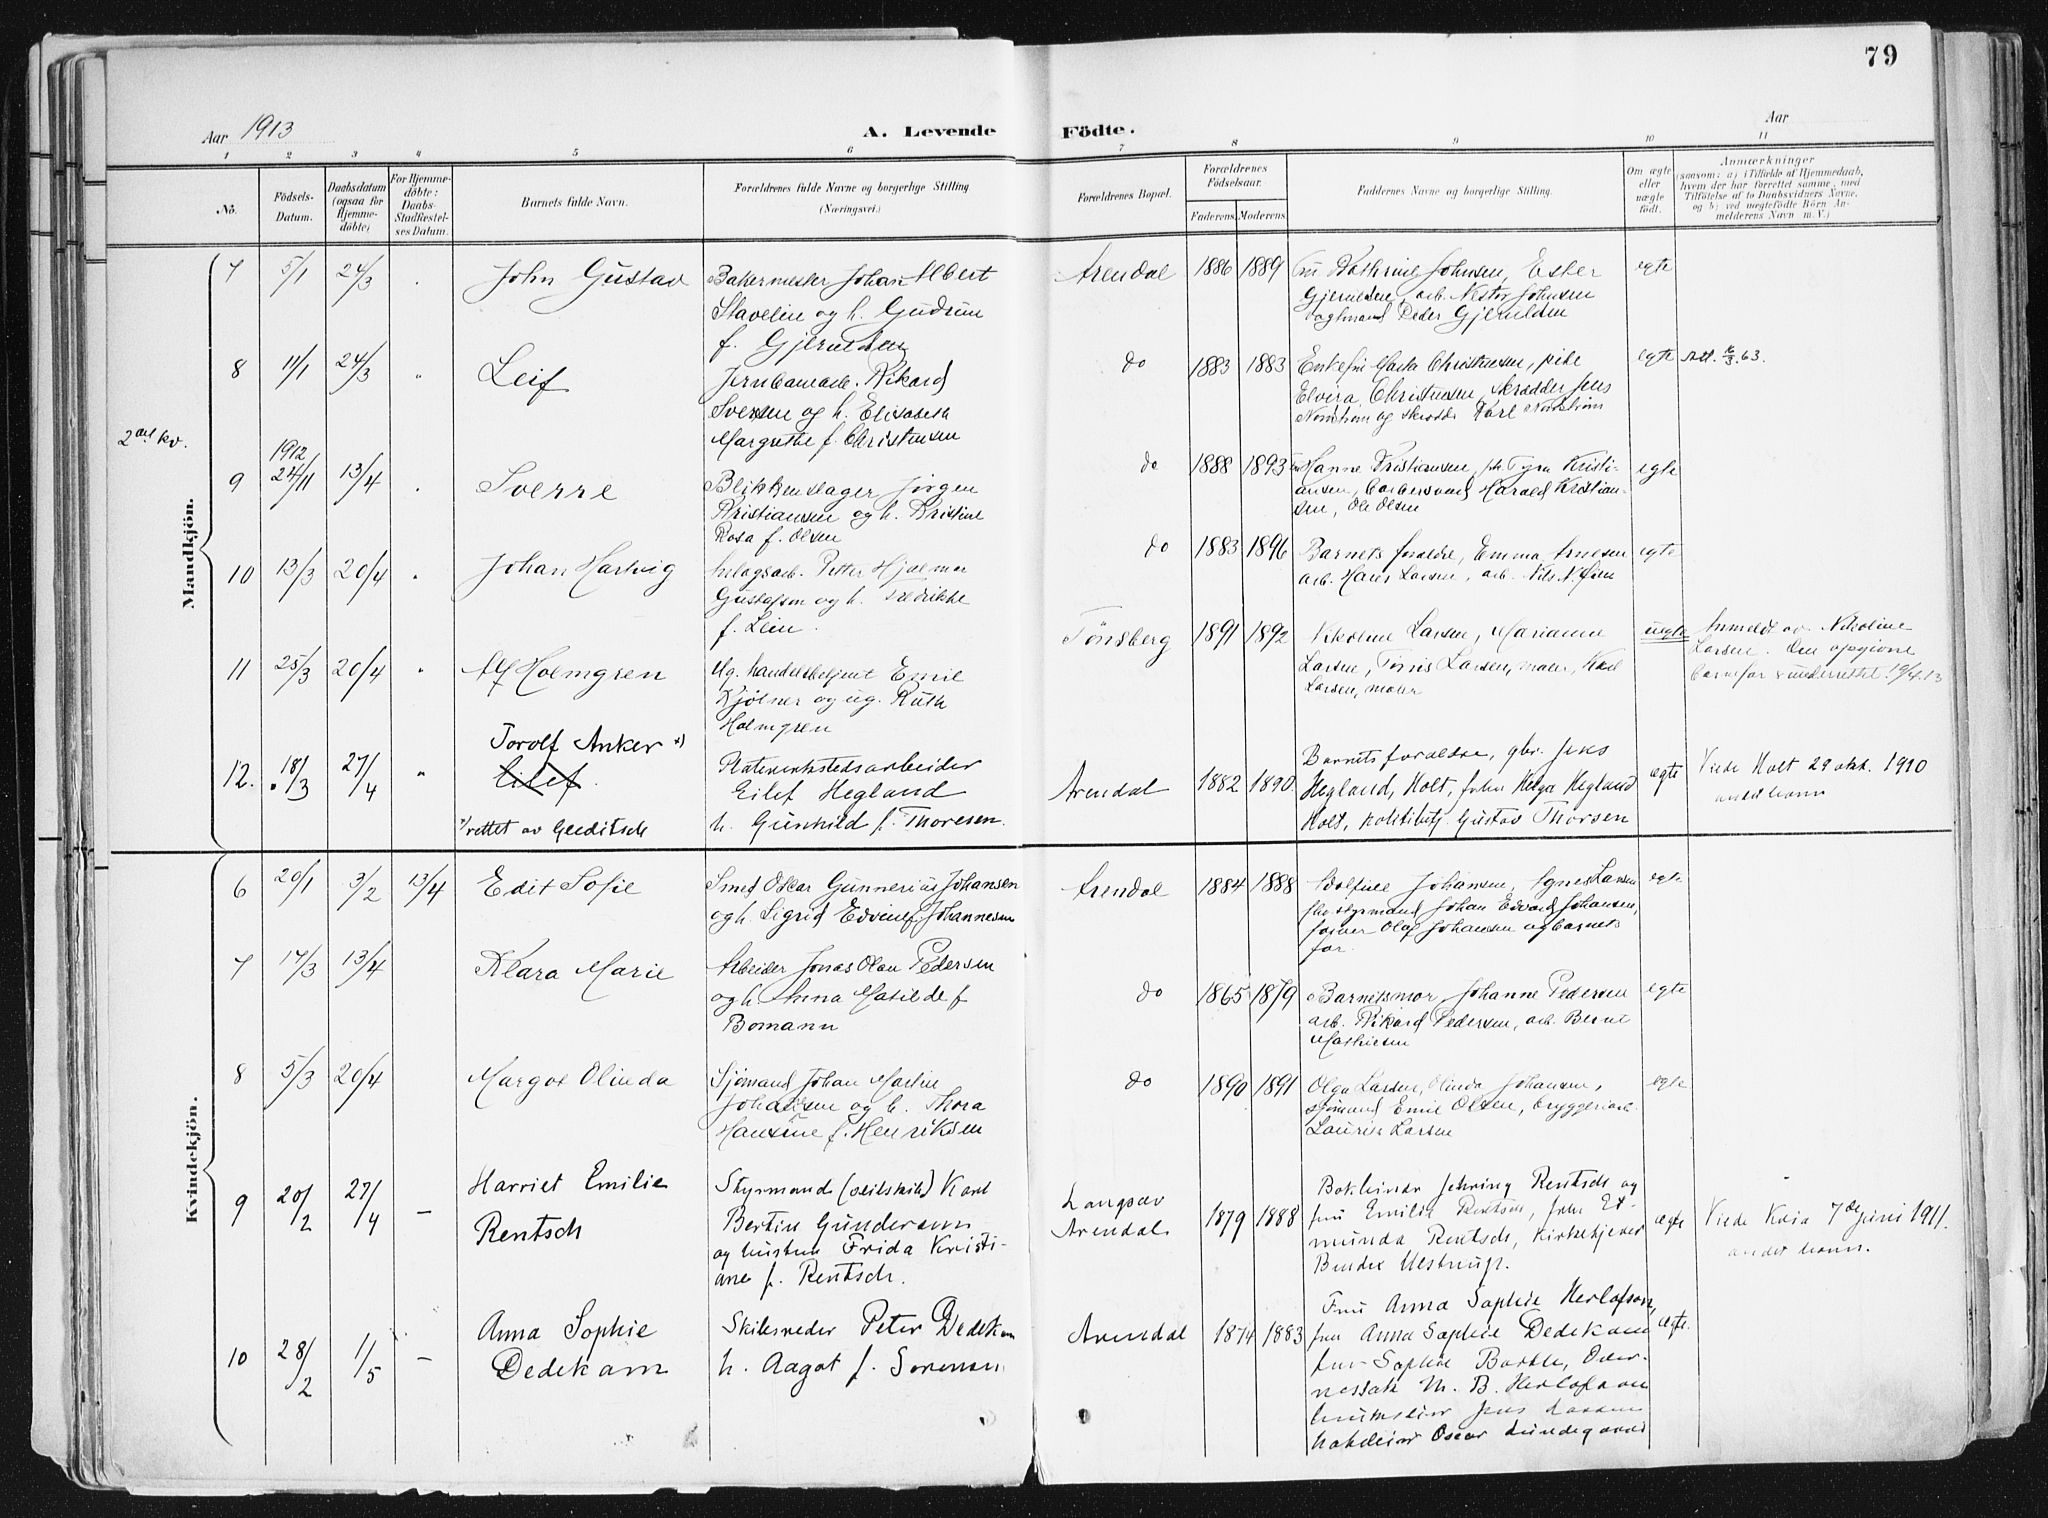 79
Aar 1913
A. Levende Födte.
Aar
1 2 3 4 5 6 7 8 9 10 11
No.
Födsels-Datum.
Daabsdatum (ogsaa for Hjemme-döbte)
For Hjemme-döbte: Daabs-Stadfestel-ses Datum.
Barnets fulde Navn.
Forældrenes fulde Navne og borgerlige Stilling (Næringsvei.)
Forældrenes Bopæl.
Forældrenes Födselsaar.
Faderens. Moderens.
Faddernes Navne og borgerlige Stilling.
Om ægte eller uægte födt.
Anmærkninger
(saasom: a) i Tilfælde af Hjemmedaab,
hvem der har forrettet samme, med
Tilföielse af to Daabsvidners Navne,
og b) ved uægtefödte Börn An-
melderens Navn m. V.)
Mandkjön.
7 5/1 24/3 John Gustav
Bakermester Johan Albert
Stavelin og h. Gudrun
f. Gjeruldsen
Arendal 1886 1889
Fru Kathrine Johnsen, Ester
Gjeruldsen, arb. Nestor Johnsen
Peder Gjeruldsen
egte
8 11/1 24/3 " Leif
Jernbanearb. Rikard
Svensen og h. Elisabeth
Margrethe f. Christensen
do 1883 1883
Enkefru Marta Christensen, pike
Elvira Christensen, skrædder Jens
Nordstrøm og skrædd. Karl Nordstrøm
egte
2det kv.
9 1912 24/11 13/4 Sverre
Blikkenslager Jørgen
Kristiansen og h. Kristine
Rosa f. Olsen
do 1888 1893
Hanne Kristiansen, pk. Tyra Kristi-
ansen, barbersvend Harald Kristian-
sen, Ole Olsen
egte
10 13/3 20/4 " Johan Hartvig
Petter Hjalmar
Gustafsen og h. Fredrikke
f. Lein.
do 1883 1896
Barnets foreldre, Emma Arnesen
arb. Hans Larsen, arb. Nils N.
egte
11 25/3 20/4 " Alf Holmgren
Ug. handelsbetjent Emil
Kjølner og ug. Ruth
Holmgren
Tönsberg 1891 1892
Nikoline Larsen, Marianne
Larsen, Tönnis Larsen, maler, Karl
Larsen, maler
uegte
Anmeldt av Nikoline
Larsen. Den opgivne
barnefar underrettet 19/4.13
12. 18/3 27/4 " Torolf Anker x)
Eilef.
x) rettet av Gleditsch
Plateverkstedsarbeider
Eilef Hegland
h. Gunhild f. Thoresen.
Arendal 1882 1890
Barnets foraldre, gbr. Jens
Hegland, Holt, frkn Helga Hegland
Holt, Gustav Thorsen
ægte
Viede Holt 29 okt. 1910
andet barn
Kvindekjön.
6 20/1 3/2 13/4 Edit Sofie
Smed Oscar Gunnerius Johansen
og h. Sigrid Edvine f. Johannesen
Arendal 1884 1888
Wolfine Johansen, Agnes Larsen
styrmand Johan Edvard Johansen,
Olaf Johansen og barnets
far.
egte
7 17/3 13/4 Klara Marie
Arbeider Jonas Olau Pedersen
og h. Anna Matilde f.
Bomann
do 1865 1879
Barnets mor, Johanne Pedersen
arb. Rikard Pedersen, arb. Bernt
Mathiesen
egte
8 5/3 20/4 Margot Olinda
Sjömand Johan Martin
Johansen og h. Thora
Hansine f. Henriksen
do 1890 1891
Olga Larsen, Olinda Johansen,
sjömand Emil Olsen, bryggeriarb.
Laurits Larsen
egte
9 20/2 27/4 – Harriet Emilie
Rentsch
Styrmand (seilskib) Karl
Bertin Gundersen
og hustru Frida Kristi-
ane f. Rentsch.
Langsæv
Arendal 1879 1888
Bokbinder Rentsch og
fru Emilie Rentsch, frkn Ed-
munda Rentsch, kirketjener
Bendix Ulstrup.
ægte
Viede Kria 7de juni 1911.
andet barn.
10 28/2 1/5 – Anna Sophie
Dedekam
Skibsreder Peter Dedekam
h. Aagot f. Sorensen
Arendal 1874 1883
Fru Anna Sophie Herlofson,
fru Anna Sophie Dedekam
fru Sophie
M. B. Herlofson
Jens
Oscar Lundegaard
ægte.